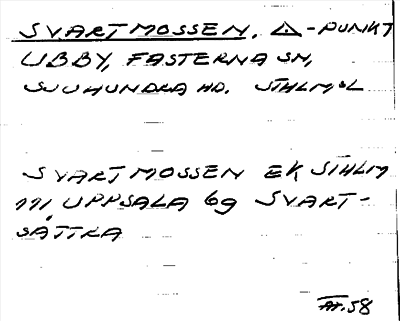 SVARTMOSSEN, △-PUNKT
UBBY, FASTERNA SN,
SJUHUNDRA HD. STHLMS L
SVARTMOSSEN EK STHLM
111 UPPSALA 6g SVART-
SÄTTRA
AT. 58